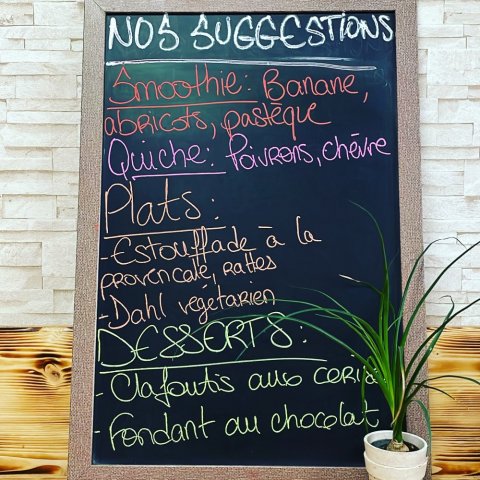 NOS SUGGESTIONS
Smoothie: Banane,
abricots, pastèque
Quiche: Poivrons, chèvre
Plats:
- Estouffade à la
provençale, rattes
- Dahl végétarien
DESSERTS:
- Clafoutis aux
- Fondant au chocolat